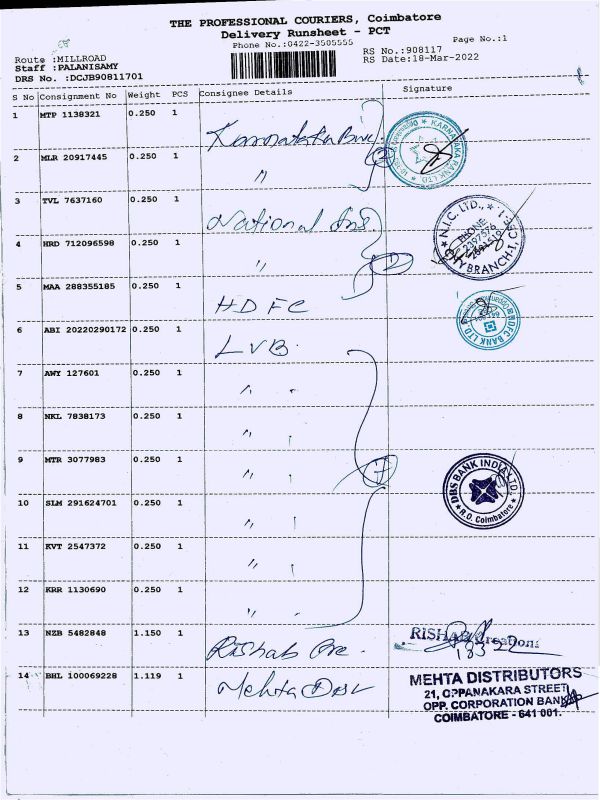 THE PROFESSIONAL COURIERS, Coimbatore
Delivery Runsheet - PCT
Phone No.:0422-3505555
Page No.:1
Route :MILLROAD
Staff :PALANISAMY
DRS No. :DCJB90811701
RS No.:908117
RS Date:18-Mar-2022
S No Consignment No Weight PCS Consignee Details Signature
1 MTP 1138321 0.250 1 Karnataka Bank
KARNATAKA BANK LTD.
2 MLR 20917445 0.250 1 "
3 TVL 7637160 0.250 1 National Ins
N.I.C. LTD.,
PHONE:
2397576
CITY BRANCH-I, CBE-1
4 HRD 712096598 0.250 1 "
5 MAA 288355185 0.250 1 HDFC
HDFC BANK LTD
6 ABI 20220290172 0.250 1 LVB
7 AWY 127601 0.250 1 "
8 NKL 7838173 0.250 1 "
9 MTR 3077983 0.250 1 " 7
DBS BANK INDIA LTD.
R.O. Coimbatore
10 SLM 291624701 0.250 1 "
11 KVT 2547372 0.250 1 "
12 KRR 1130690 0.250 1 "
13 NZB 5482848 1.150 1 Rishab Cre.
RISHAB Creations
14 BHL 100069228 1.119 1 Mehta
MEHTA DISTRIBUTORS
21, OPPANAKARA STREET
OPP. CORPORATION BANK
COIMBATORE - 641 001.